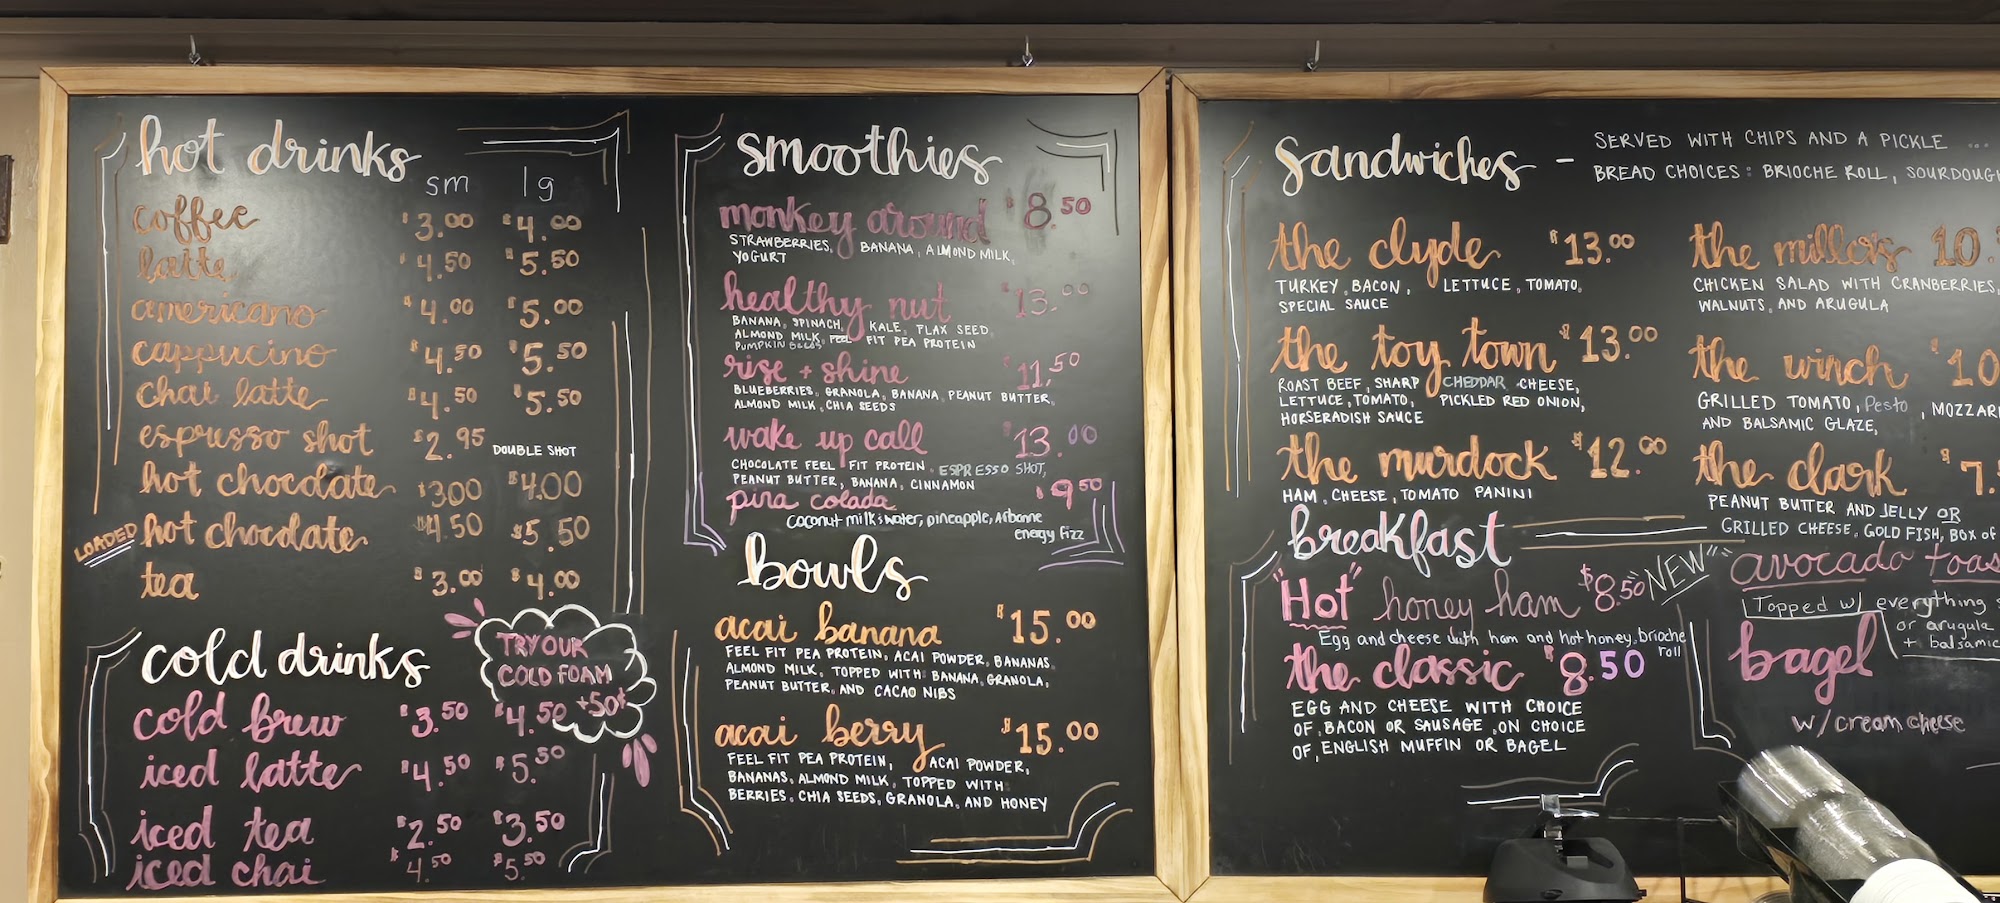 hot drinks
sm lg
coffee $3.00 $4.00
latte $4.50 $5.50
americano $4.00 $5.00
cappucino $4.50 $5.50
chai latte $4.50 $5.50
espresso shot $2.95 DOUBLE SHOT
hot chocolate $3.00 $4.00
LOADED hot chocolate $4.50 $5.50
tea $3.00 $4.00
TRY OUR
COLD FOAM
+50¢
cold drinks
cold brew $3.50 $4.50
iced latte $4.50 $5.50
iced tea $2.50 $3.50
iced chai $4.50 $5.50
smoothies
monkey around $8.50
STRAWBERRIES, BANANA, ALMOND MILK,
YOGURT
healthy nut $13.00
BANANA, SPINACH, KALE, FLAX SEED,
ALMOND MILK, FEEL FIT PEA PROTEIN
PUMPKIN SEEDS
rise + shine $11.50
BLUEBERRIES, GRANOLA, BANANA, PEANUT BUTTER,
ALMOND MILK, CHIA SEEDS
wake up call $13.00
CHOCOLATE FEEL FIT PROTEIN, ESPRESSO SHOT,
PEANUT BUTTER, BANANA, CINNAMON
pina colada $9.50
coconut milk & water, pineapple, Arbonne
energy fizz
bowls
acai banana $15.00
FEEL FIT PEA PROTEIN, ACAI POWDER, BANANAS,
ALMOND MILK, TOPPED WITH: BANANA, GRANOLA,
PEANUT BUTTER, AND CACAO NIBS
acai berry $15.00
FEEL FIT PEA PROTEIN, ACAI POWDER,
BANANAS, ALMOND MILK, TOPPED WITH:
BERRIES, CHIA SEEDS, GRANOLA, AND HONEY
sandwiches - SERVED WITH CHIPS AND A PICKLE ...
BREAD CHOICES: BRIOCHE ROLL, SOURDOUGH
the clyde $13.00
TURKEY, BACON, LETTUCE, TOMATO,
SPECIAL SAUCE
the toy town $13.00
ROAST BEEF, SHARP CHEDDAR CHEESE,
LETTUCE, TOMATO, PICKLED RED ONION,
HORSERADISH SAUCE
the murdock $12.00
HAM, CHEESE, TOMATO PANINI
10.
CHICKEN SALAD WITH CRANBERRIES,
WALNUTS, AND ARUGULA
the winch $10
GRILLED TOMATO, Pesto, MOZZAR
AND BALSAMIC GLAZE,
the clark $7.
PEANUT BUTTER AND JELLY OR
GRILLED CHEESE, GOLD FISH, BOX of
breakfast
"Hot" honey ham $8.50
Egg and cheese with ham and hot honey, brioche
roll
the classic $8.50
EGG AND CHEESE WITH CHOICE
OF, BACON OR SAUSAGE, ON CHOICE
OF, ENGLISH MUFFIN OR BAGEL
"NEW" avocado toas
Topped w/ everything s
or arugula
+ balsamic
bagel
w/ cream cheese